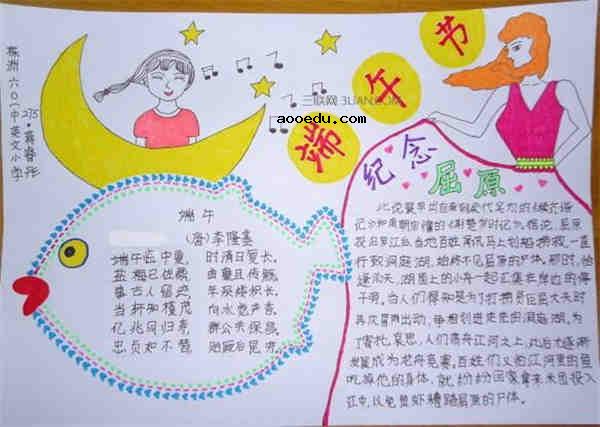 端午节
三联网 3LIAN.COM
aooedu.com
株洲 六〇一中英文小学
275
纪念
屈原
端午
(唐)李隆基
端午临中夏, 时清日复长。
盐梅已佐鼎, 曲糵且传觞。
事古人留迹, 年深缕积长。
当轩知槿茂, 向水觉芦香。
亿兆同归寿, 群公共保昌。
忠贞如不替, 贻厥后昆芳。
此说最早出自南朝梁代吴均的《续齐谐
记》和南朝宗懔的《荆楚岁时记》。据说,屈原
投汨罗江后,当地百姓闻讯马上划船捞救,一直
行致洞庭湖,始终不见屈原的尸体。那时,恰
逢雨天,湖面上的小舟一起汇集在岸边的亭
子旁。当人们得知是为了打捞贤臣屈大夫时
再次冒雨出动,争相划进茫茫的洞庭湖。为
了寄托哀思,人们荡舟江河之上,此后才逐渐
发展成为龙舟竞赛。百姓们又怕江河里的鱼
吃掉他的身体,就纷纷回家拿来米团投入
江中,以免鱼虾糟蹋屈原的尸体。